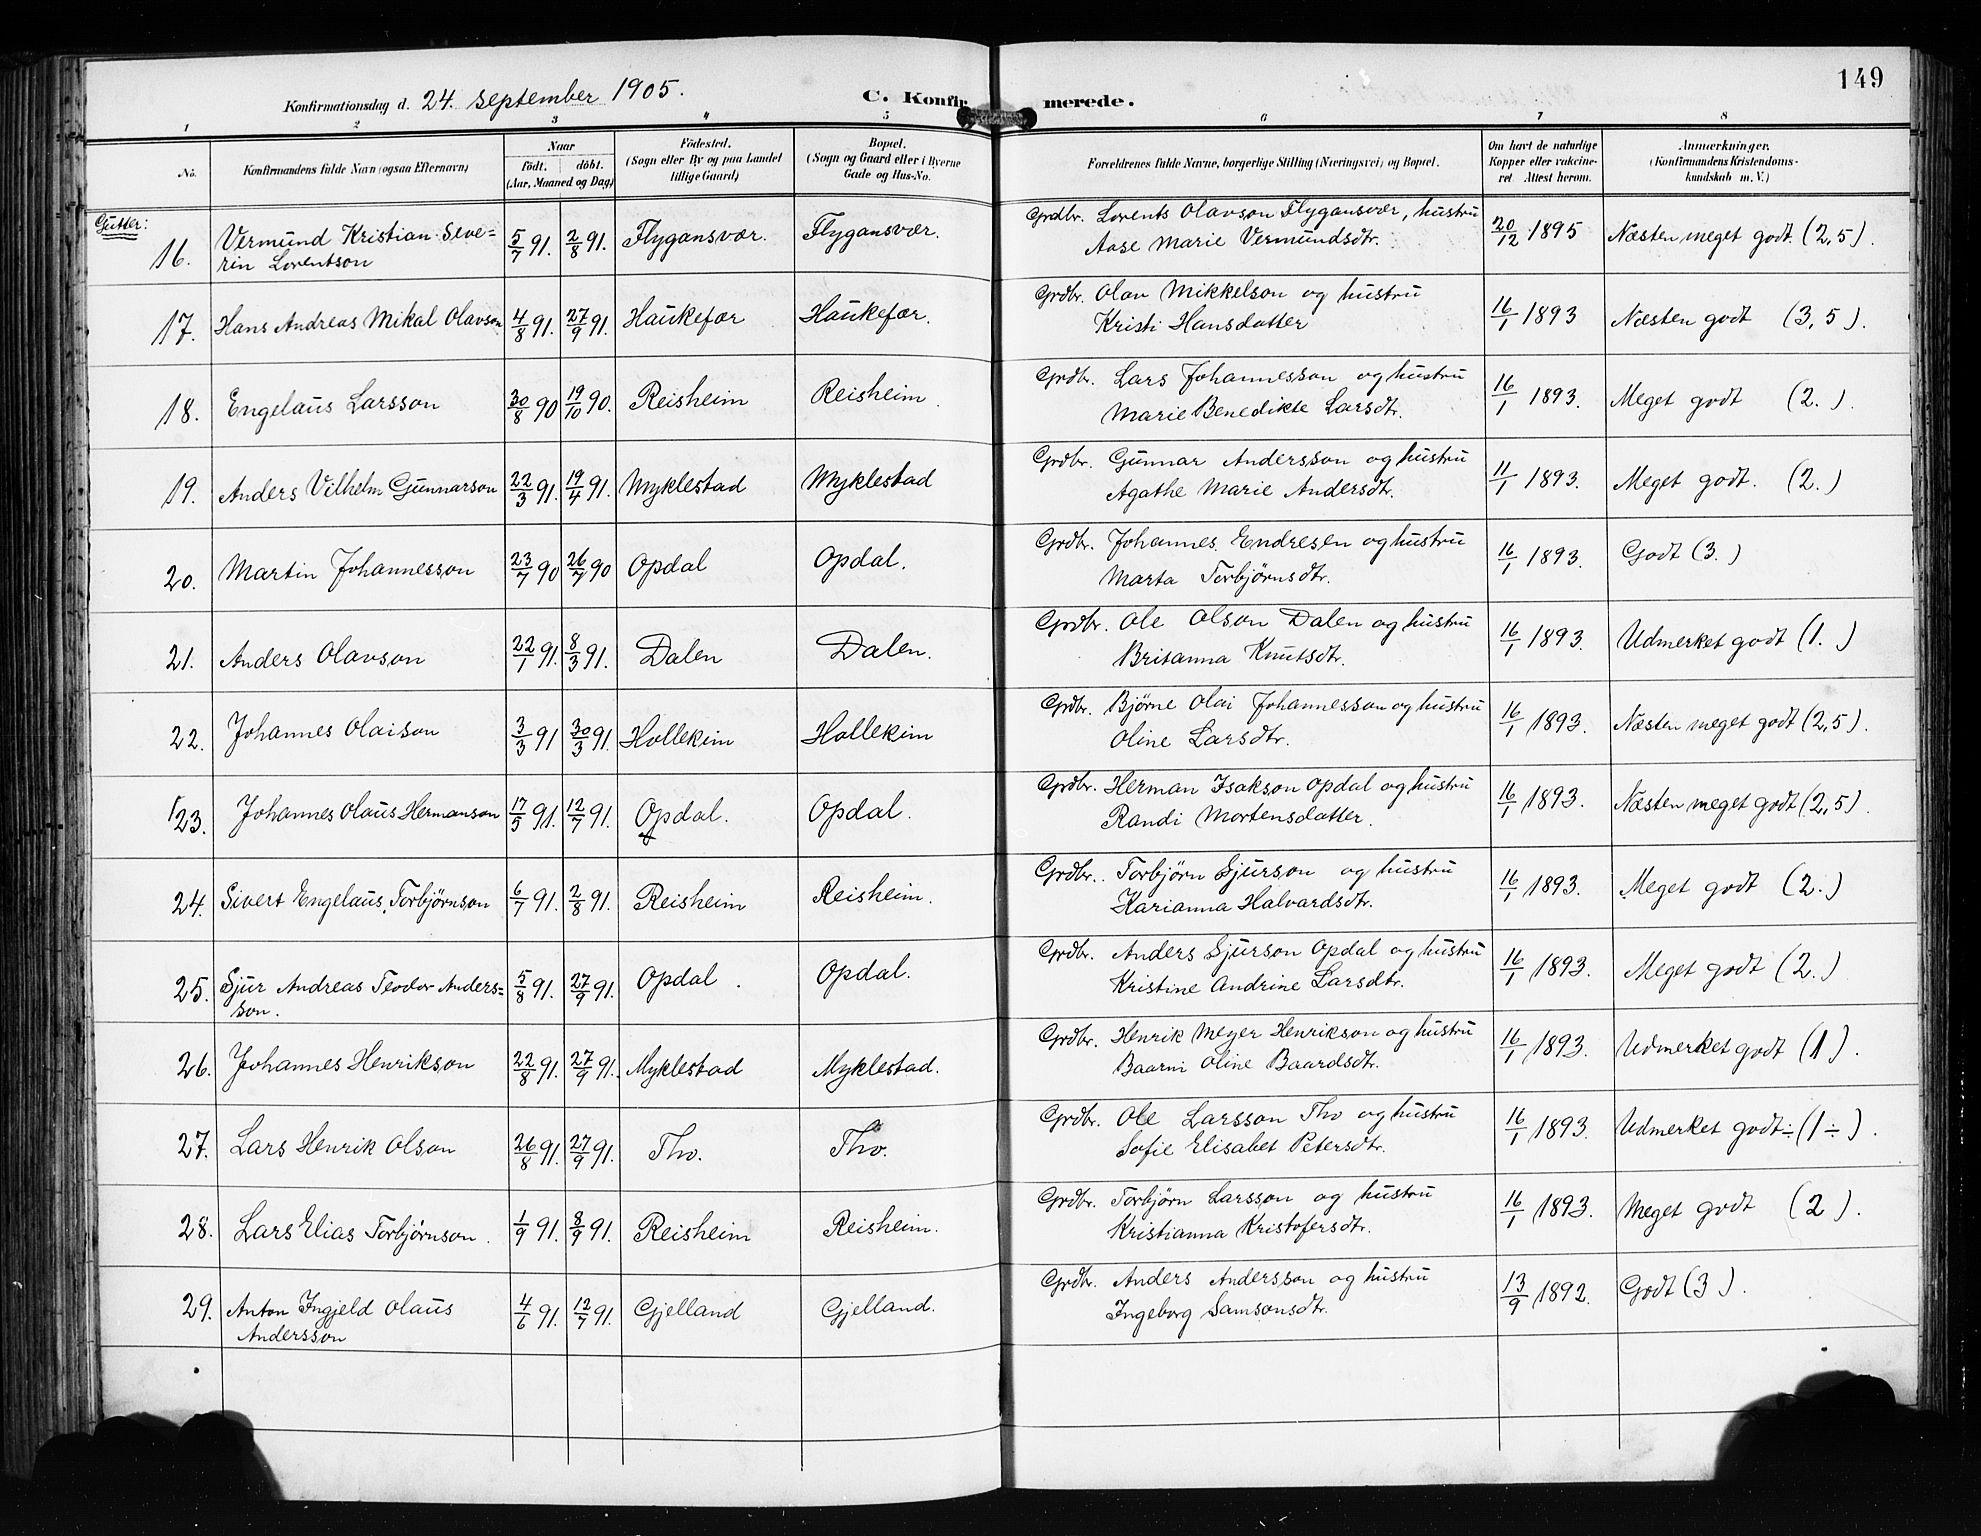 149
Konfirmationsdag d. 24. september 1905.
C. Konfir merede.
1 2 3 4 5 6 7 8
No. Konfirmandens fulde Navn (ogsaa Efternavn) Naar født. døbt. (Aar, Maaned og Dag) Fødested. (Sogn eller By og paa Landet tillige Gaard) Bopæl. (Sogn og Gaard eller i Byerne Gade og Hus-No. Forældrenes fulde Navne, borgerlige Stilling (Næringsvei) og Bopæl. Om havt de naturlige Kopper eller vakcineret. Attest herom. Anmærkninger. (Konfirmandens Kristendomskundskab m. V.)
Gutter:
16. Vermund Kristian Seve= 5/7 91. 2/8 91. Flygansvær. Flygansvær. Grdbr. Lorents Olavson Flygansvær, hustru 20/12 1895 Næsten meget godt. (2,5).
rin Lorentson Aase Marie Vermundsdtr.
17. Hans Andreas Mikal Olavson 4/8 91. 27/9 91. Haukefær Haukefær. Grdbr. Olav Mikkelson og hustru 16/1 1893 Næsten godt (3,5).
Kristi Hansdatter
18. Engelaus Larsson 30/8 90 19/10 90. Reisheim Reisheim. Grdbr. Lars Johannesson og hustru 16/1 1893. Meget godt (2.).
Marie Benedikte Larsdtr.
19. Anders Vilhelm Gunnarson 22/3 91. 19/4 91. Myklestad Myklestad Grdbr. Gunnar Andersson og hustru 11/1 1893. Meget godt. (2.)
Agathe Marie Andersdtr.
20. Martin Johannesson 23/7 90 26/7 90 Opdal Opdal. Grdbr. Johannes Endresen og hustru 16/1 1893. Godt (3.)
Marta Torbjørnsdtr.
21. Anders Olavson 22/1 91. 8/3 91. Dalen Dalen. Grdbr. Ole Olson Dalen og hustru 16/1 1893. Udmerket godt (1.)
Britanna Knutsdtr.
22. Johannes Olaison 3/3 91 30/3 91. Hollekim Hollekim Grdbr. Bjørne Olai Johannesson og hustru 16/1 1893. Næsten meget godt (2,5).
Oline Larsdtr.
23. Johannes Olaus Hermanson 17/5 91. 12/7 91. Opdal. Opdal. Grdbr. Herman Isakson Opdal og hustru 16/1 1893. Næsten meget godt (2,5).
Randi Mortensdatter.
24. Sivert Engelaus Torbjørnson 6/7 91. 2/8 91. Reisheim Reisheim. Grdbr. Torbjørn Sjurson og hustru 16/1 1893. Meget godt (2.)
Karianna Halvardsdtr.
25. Sjur Andreas Teodor Anders= 5/8 91. 27/9 91. Opdal. Opdal. Grdbr. Anders Sjurson Opdal og hustru 16/1 1893. Meget godt (2.)
son. Kristine Andrine Larsdtr.
26. Johannes Henrikson 22/8 91. 27/9 91. Myklestad Myklestad. Grdbr. Henrik Meyer Henrikson og hustru 16/1 1893. Udmerket godt (1).
Baarni Oline Baardsdtr.
27. Lars Henrik Olson 26/8 91. 27/9 91. Tho. Tho. Grdbr. Ole Larsson Tho og hustru 16/1 1893. Udmerket godt÷ (1÷).
Sofie Elisabet Petersdtr.
28. Lars Elias Torbjørnson. 1/9 91. 8/9 91. Reisheim Reisheim. Grdbr. Torbjørn Larsson og hustru 16/1 1893. Meget godt (2).
Kristianna Kristofersdtr.
29. Anton Ingjeld Olaus 4/6 91. 12/7 91. Gjelland Gjelland. Grdbr. Anders Andersson og hustru 13/9 1892. Godt (3).
Andersson Ingeborg Samsonsdtr.